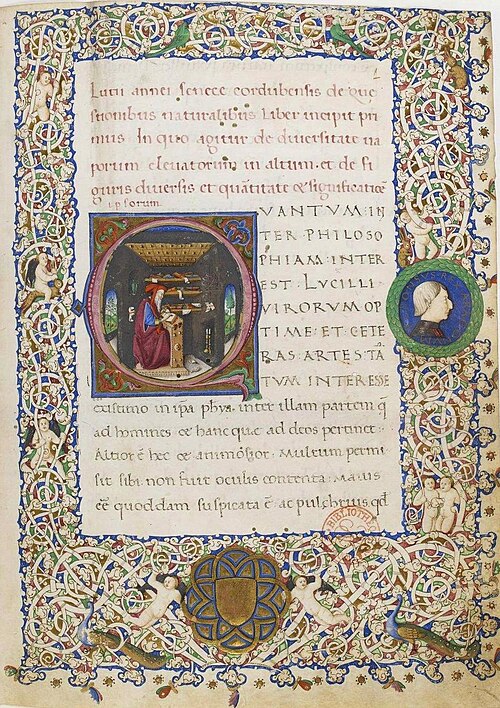 Lucii annei senece cordubensis de que
stionibus naturalibus Liber incipit pri
mus In quo agitur de diversitate va
porum elevatorum in altum et de fi
guris diversis et quātitate & significatiōe
ip̄sorum
QVANTVM IN
TER PHILOSO
PHIAM INTER
EST LVCILLI
VIRORVM OP
TIME ET CETE
RAS ARTES TĀ
TVM INTERESSE
existimo in ip̄a phya inter illam partem q̄
ad homines & hanc quae ad deos pertinet
Altior ē hec & animosior Multum permi
sit sibi non fuit oculis contenta Maius
eē quoddam suspicata ē ac pulchrius qd
BIBLIOTHE